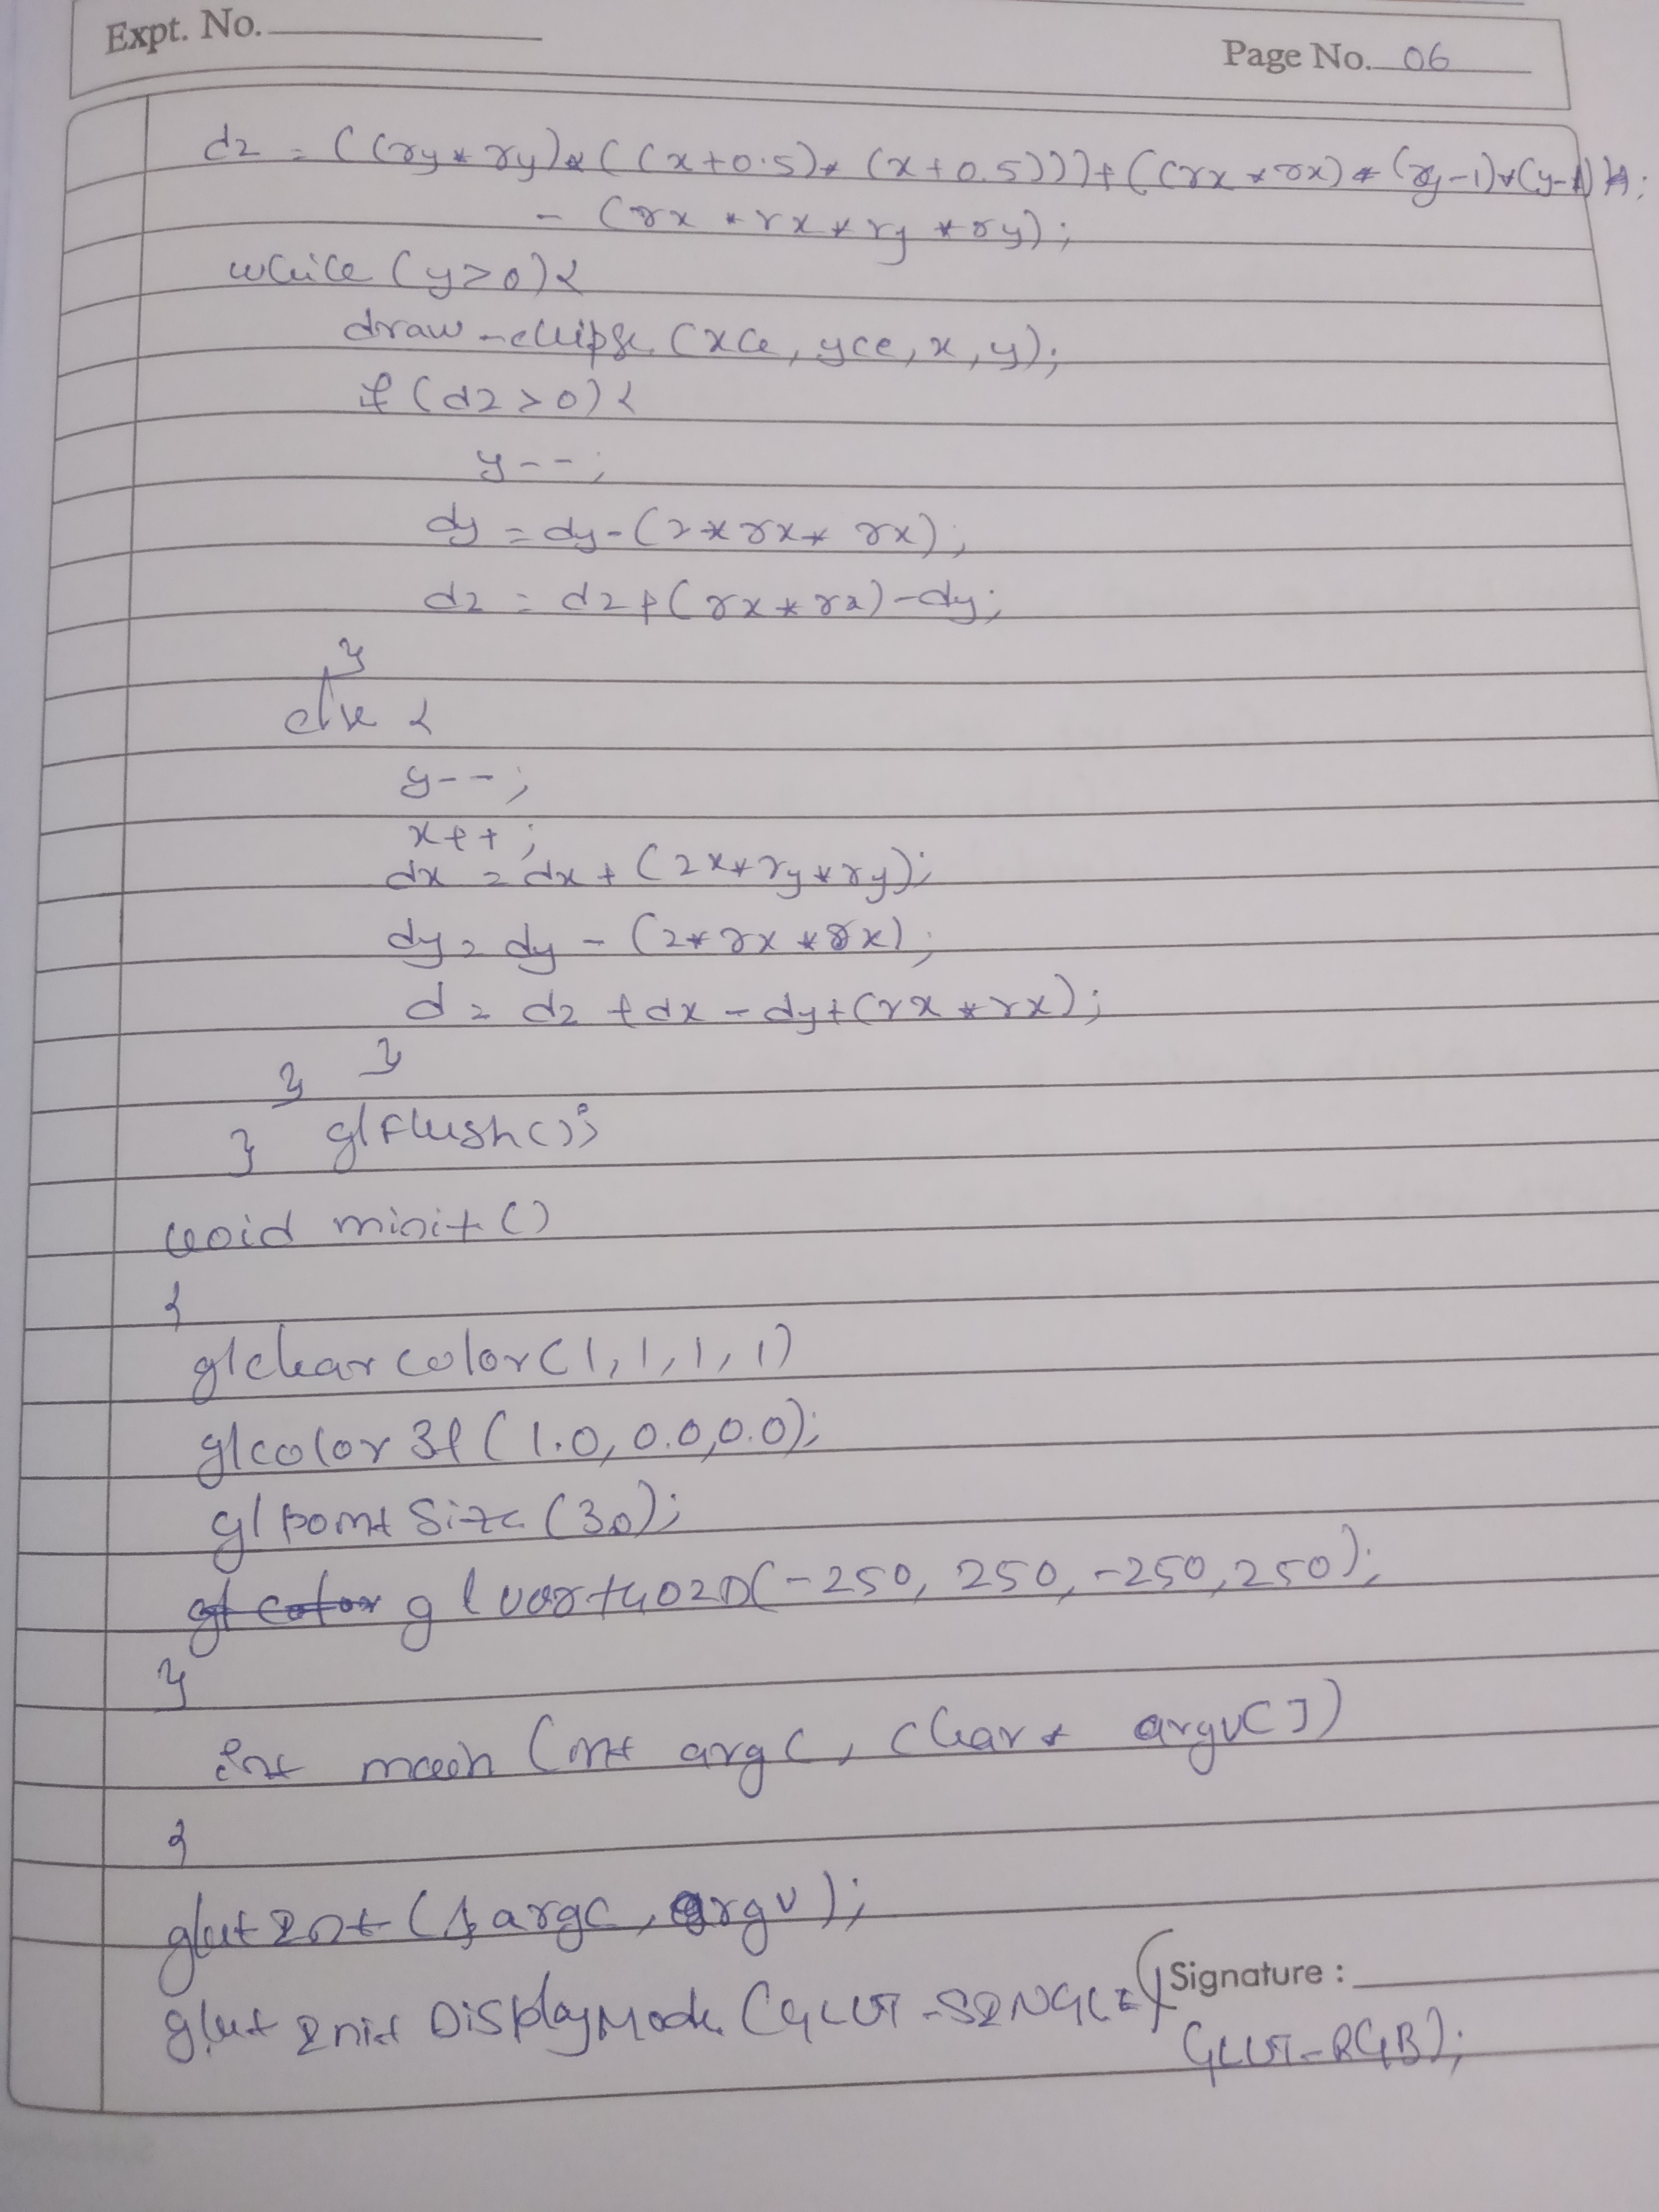 Expt. No.
Page No. 06
d2 = ((ry * ry) * ((x+0.5) * (x+0.5))) + ((rx * rx) * (y-1) * (y-1));
- (rx * rx * ry * ry);
while (y>0){
draw-ellipse (xce, yce, x, y);
if (d2 > 0) {
y--;
dy = dy - (2 * rx * rx);
d2 = d2 + (rx * rx) - dy;
}
else {
y--;
x++;
dx = dx + (2x * ry * ry);
dy = dy - (2 * rx * rx);
d = d2 + dx - dy + (rx * rx);
}
}
} glFlush();
void minit()
{
glclear color(1,1,1,1)
glcolor 3f (1.0, 0.0, 0.0);
gl point Size (30);
gl color g l uortho2D(-250, 250, -250, 250);
}
int main (int argc, char * argv[])
{
glut Init (& argc, argv);
glut Init Display Mode (GLUT-SINGLE |
Signature :
GLUT-RGB);